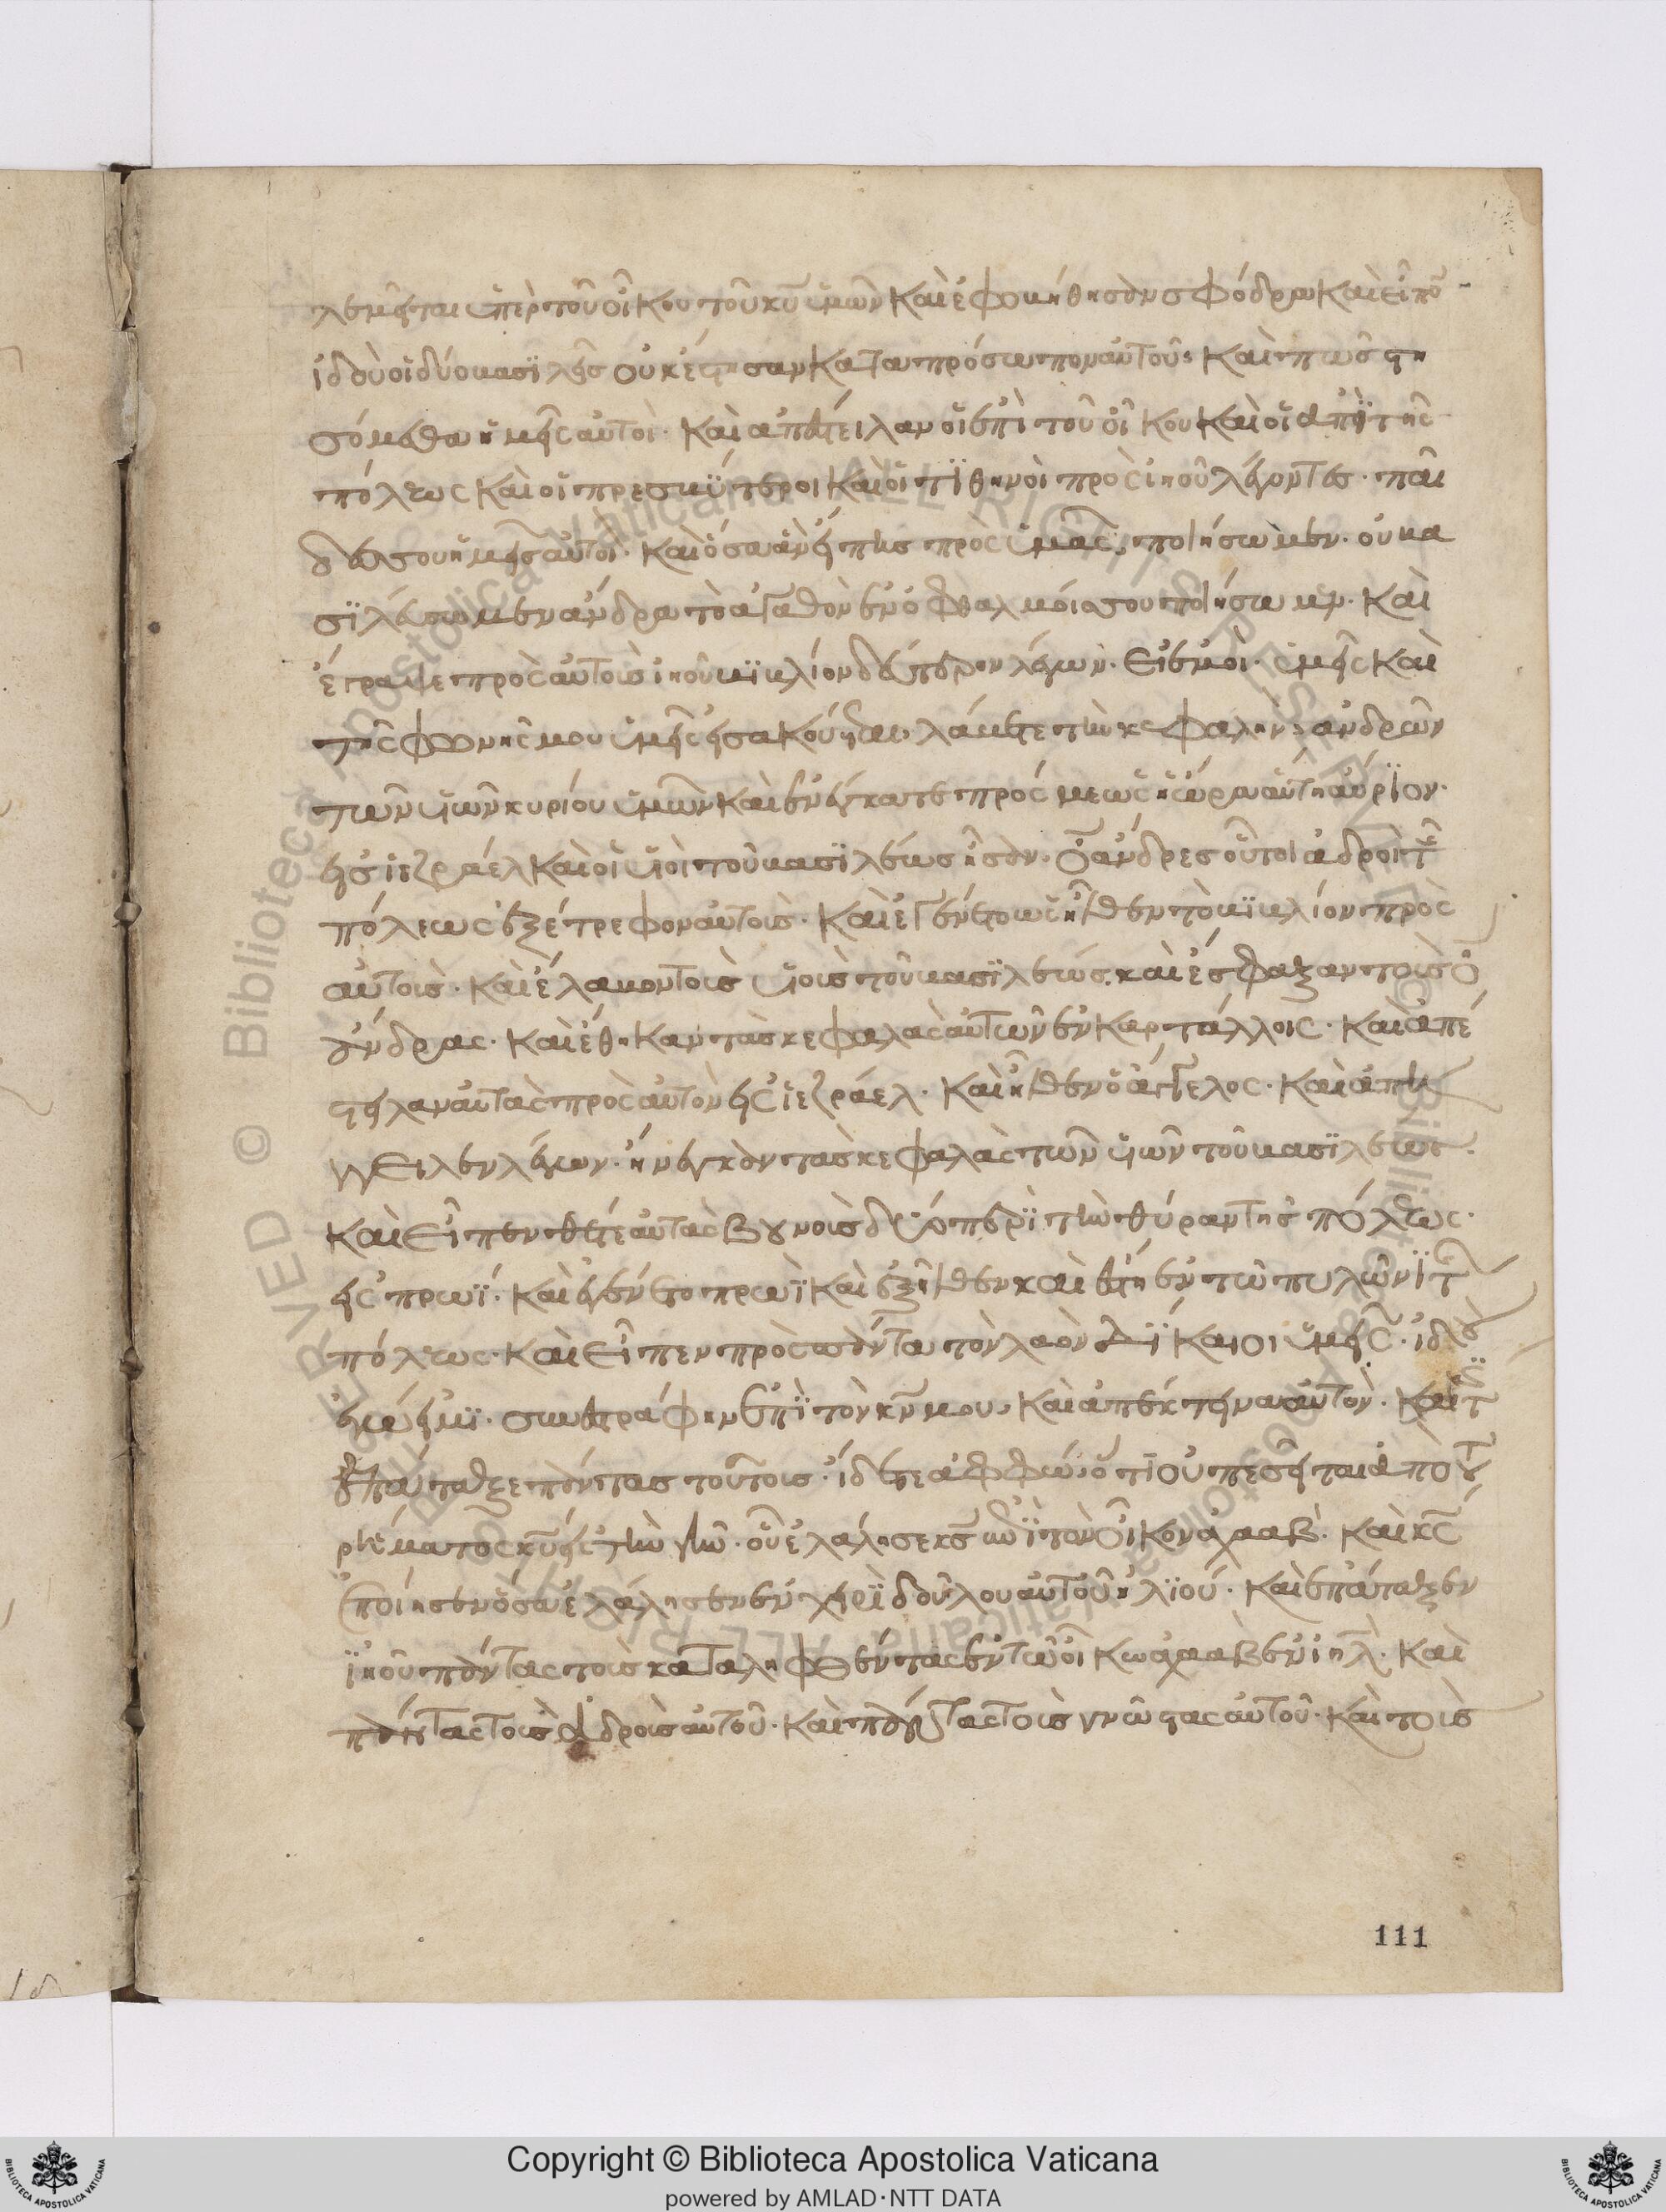 λεμεῖται ὑπὲρ τοῦ οἴκου τοῦ κυ ὑμῶν καὶ ἐφοβήθησαν σφόδρα καὶ εἶπο
ἰδοὺ οἱ δύο βασιλεῖς οὐκ ἔστησαν κατα πρόσωπον αὐτοῦ· καὶ πῶς στη
σόμεθα ἡμεῖς αὐτοί· καὶ ἀπέστειλαν οἱ ἐπὶ τοῦ οἴκου καὶ οἱ ἀπὶ τῆς
πόλεως καὶ οἱ πρεσβύτεροι καὶ οἱ τιθηνοὶ πρὸς ἰηοῦ λέγοντες· παῖ
δές σου ἡμεῖς αὐτοί· καὶ ὅσα ἂν εἴπης πρὸς ἡμᾶς, ποιήσωμεν· οὐ βα
σιλεύσωμεν ἄνδρα τὸ ἀγαθὸν ἐν ὀφθαλμοῖς σου ποιήσωμεν· καὶ
ἔγραψε πρὸς αὐτοὺς ἰηοῦ βιβλίον δεύτερον λέγων· εἰ ἐμοὶ ὑμεῖς καὶ
τῆς φωνῆς μου ὑμεῖς εἰσακούεται· λάβετε τὴν κεφαλὴν ἀνδρῶν
τῶν υἱῶν κυρίου ὑμῶν καὶ ἐνέγκατε πρός με ὡς ἡ ὥρα αὕτη αὔριον·
εἰς ἰεζράελ καὶ οἱ υἱοὶ τοῦ βασιλέως ἦσαν· ο ἄνδρες οὗτοι ἁδροὶ τῆς
πόλεως ἐξέτρεφον αὐτούς· καὶ ἐγένετο ὡς ἦλθεν τὸ βιβλίον πρὸς
αὐτούς· καὶ ἔλαβον τοὺς υἱοὺς τοῦ βασιλέως· καὶ ἔσφαξαν τοὺς ο
ἄνδρας· καὶ ἔθηκαν τὰς κεφαλὰς αὐτῶν ἐν καρτάλλοις· καὶ ἀπέ
στειλαν αὐτὰς πρὸς αὐτὸν εἰς ἰεζράελ· καὶ ἦλθεν ὁ ἄγγελος· καὶ ἀπήγ
γειλεν λέγων· ἤνεγκαν τὰς κεφαλὰς τῶν υἱῶν τοῦ βασιλέως·
καὶ εἶπεν θέτε αὐτὰς βουνοὺς δύο περὶ τὴν θύραν τῆς πόλεως·
εἰς πρωΐ· καὶ ἐγένετο πρωῒ καὶ ἐξῆλθεν καὶ ἔστη ἐν τῶ πυλῶνι τῆς
πόλεως· καὶ εἶπεν πρὸς πάντα τὸν λαὸν δίκαιοι ὑμεῖς· ἰδοὺ
ἐγώ εἰμι· συνεστράφην ἐπὶ τὸν κν μου· καὶ ἀπέκτεινα αὐτόν· καὶ τίς
ἐπάταξε πάντας τούτους· ἴδετε ἀφφώ· ὅτι οὐ πεσεῖται ἀπὸ τοῦ
ῥήματος κυ εἰς τὴν γῆν· οὗ ἐλάλησε κς ἐπὶ τὸν οἶκον ἀχαάβ· καὶ κς
ἐποίησεν ὅσα ἐλάλησεν ἐν χειρὶ δούλου αὐτοῦ ἠλιού· καὶ ἐπάταξεν
ἰηοῦ πάντας τοὺς καταληφθέντας ἐν τῶ οἴκω ἀχαὰβ ἐν ιηλ· καὶ
πάντας τοὺς ἁδροὺς αὐτοῦ· καὶ πάντας τοὺς γνώστας αὐτοῦ· καὶ τοὺς
111
Copyright © Biblioteca Apostolica Vaticana
powered by AMLAD·NTT DATA